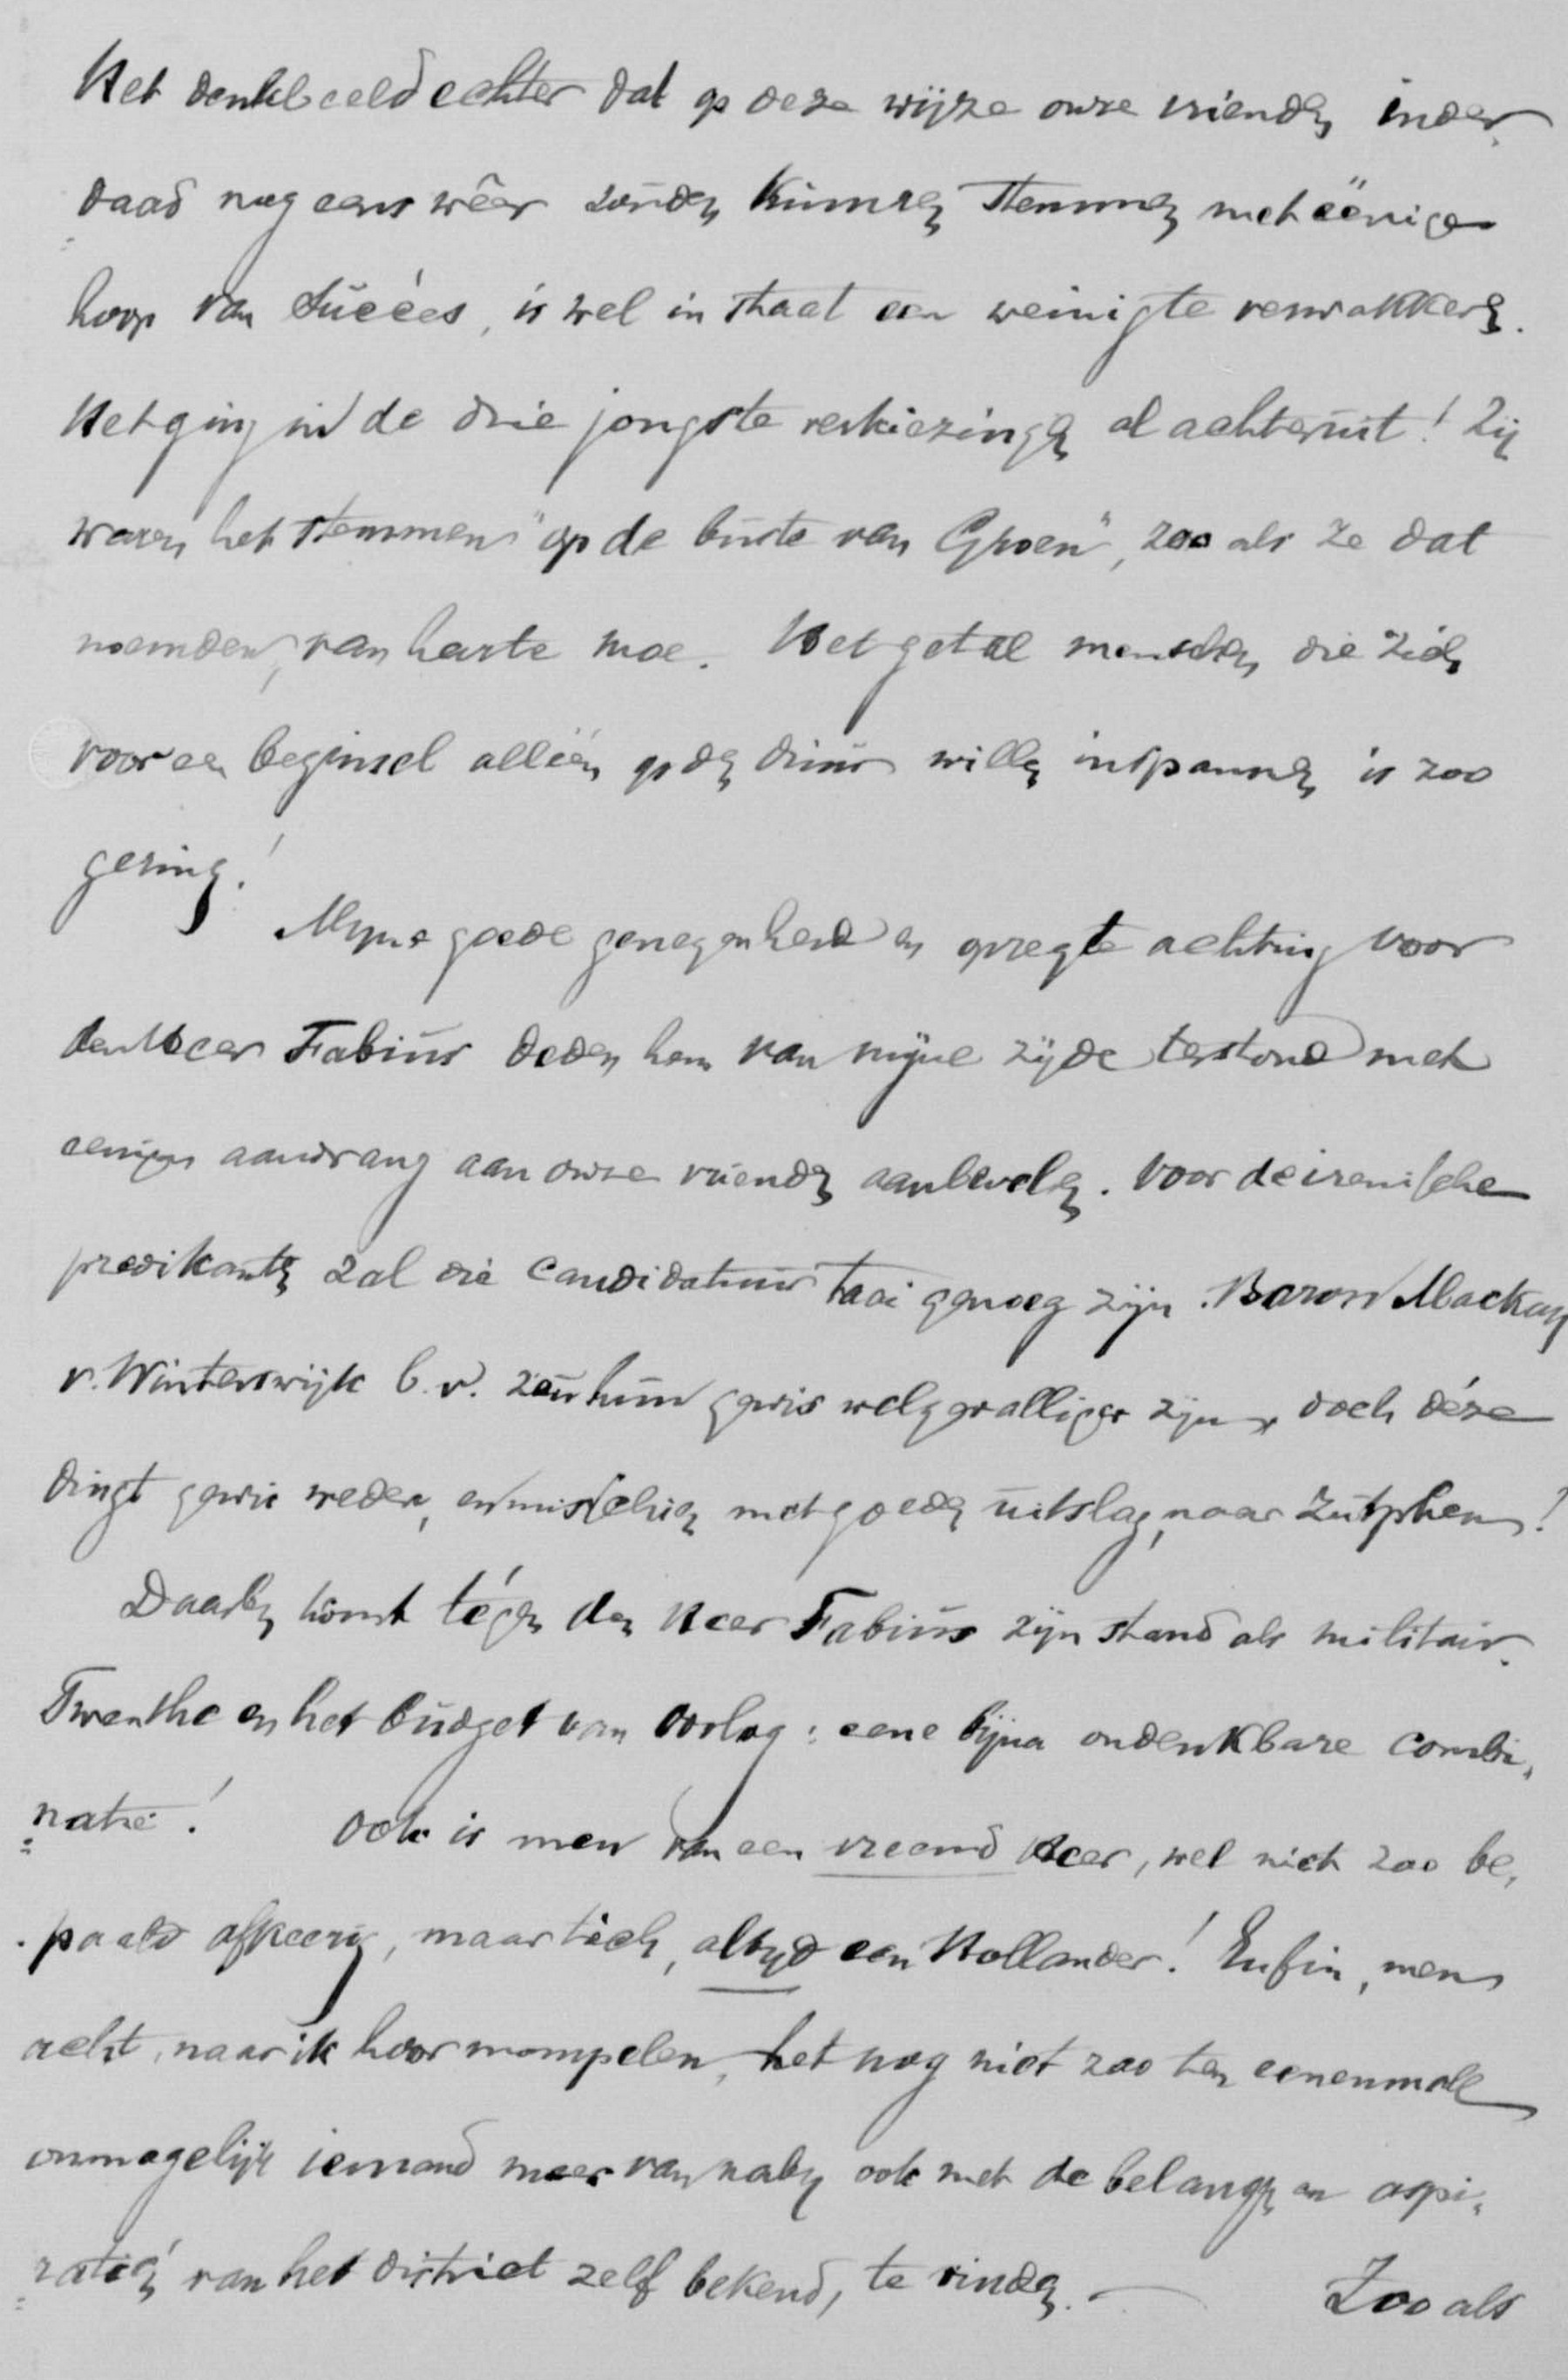 Het denkbeeld echter dat op deze wijze onze vrienden inder-
daad nog eens wêer zouden kunnen stemmen met ëenige
hoop van succès, is wel in staat een weinigte verwakkeren.
Het ging in de drie jongste verkiezingen al achteruit! Zij
waren het stemmen "op de buste van Groen", zoo als ze dat
noemden, van harte moe. Het getal menschen die zich
voor een beginsel alléén op den duur willen inspannen is zoo
gering!
Mijne goede genegenheid en opregte achting voor
den Heer Fabius deden hem van mijne zijde terstond met
eenigen aandrang aan onze vrienden aanbevelen. Voor de irenische
predikanten zal die candidatuur taai genoeg zijn. Baron Mackay
v. Winterswijk b.v. zou hun gewis welgevalliger zijn, doch déze
dingt gewis weder, en misschien met goeden uitslag, naar Zutphen!
Daarby komt tégen den Heer Fabius zijn stand als militair.
Twenthe en het budget van Oorlog: eene bijna ondenkbare combi-
natie! Ook is men van een vreemd Heer, wel niet zoo be-
paald afkeerig, maar tóch, altyd een Hollander! Enfin, men
acht, naar ik hoor mompelen, het nog niet zoo ten eenenmale
onmogelijk iemand meer van naby ook met de belangen en aspi-
ratiën van het district zelf bekend, te vinden. — Zoo als